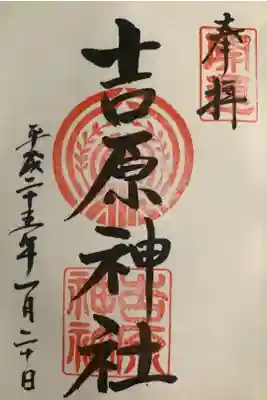 奉拝
吉原神社
平成二十五年一月二十日